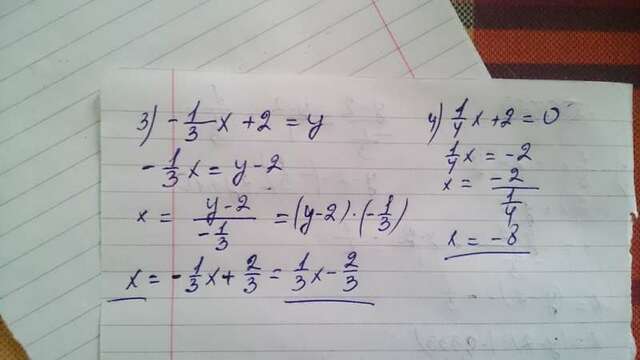 3) -1/3 x + 2 = y
-1/3 x = y - 2
x = (y-2)/(-1/3) = (y-2)·(-1/3)
x = -1/3 x + 2/3 = 1/3 x - 2/3
4) 1/4 x + 2 = 0
1/4 x = -2
x = -2/(1/4)
x = -8